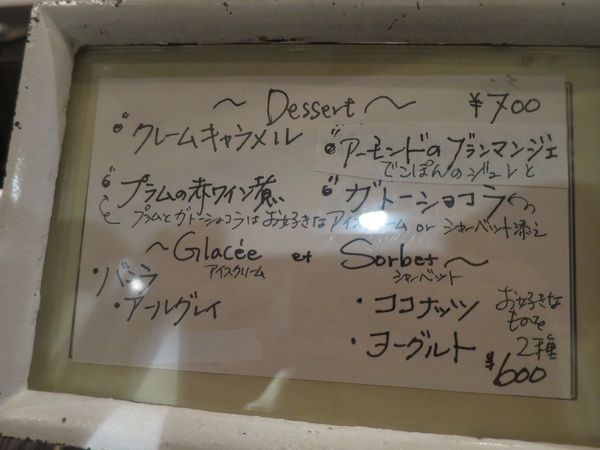 ～ Dessert ～ ¥700
クレームキャラメル
アーモンドのブランマンジェ
でこぽんのジュレと
プラムの赤ワイン煮
ガトーショコラ
プラムとガトーショコラはお好きなアイスクリーム or シャーベット添え
～Glacée et Sorbet～
アイスクリーム
シャーベット
・バニラ
・アールグレイ
・ココナッツ
・ヨーグルト
お好きな
ものを
2種
¥600